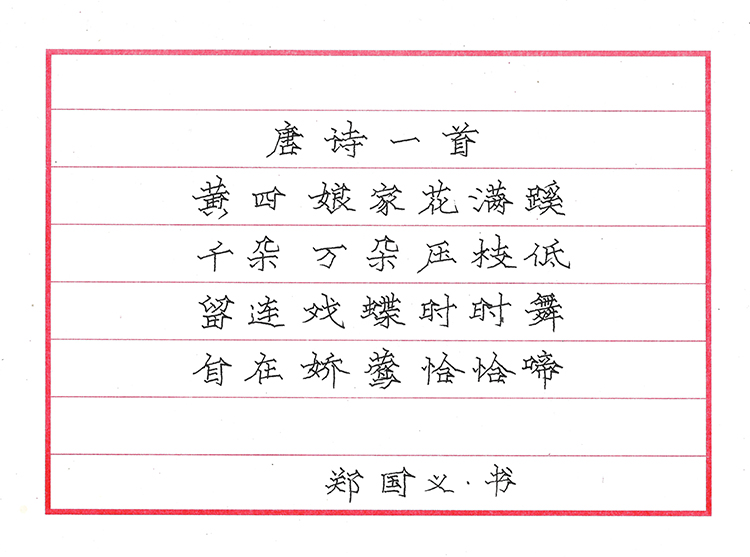 唐诗一首
黄四娘家花满蹊
千朵万朵压枝低
留连戏蝶时时舞
自在娇莺恰恰啼
郑国义·书